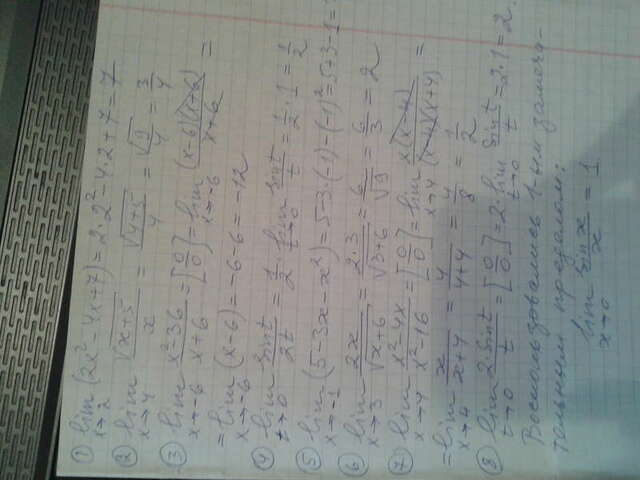 ① lim x→2 (2x²-4x+7) = 2·2²-4·2+7=7
② lim x→4 √(x+5)/x = √(4+5)/4 = √9/4 = 3/4
③ lim x→-6 (x²-36)/(x+6) = [0/0] = lim x→-6 (x-6)(x+6)/(x+6) =
= lim x→-6 (x-6) = -6-6 = -12
④ lim t→0 sint/2t = 1/2 · lim t→0 sint/t = 1/2 · 1 = 1/2
⑤ lim x→-1 (5-3x-x²) = 5-3·(-1)-(-1)² = 5+3-1=
⑥ lim x→3 2x/√(x+6) = 2·3/√(3+6) = 6/√9 = 6/3 = 2
⑦ lim x→4 (x²-4x)/(x²-16) = [0/0] = lim x→4 x(x-4)/(x-4)(x+4) =
= lim x→4 x/(x+4) = 4/(4+4) = 4/8 = 1/2
⑧ lim t→0 2sint/t = [0/0] = 2·lim t→0 sint/t = 2·1 = 2.
Воспользовались 1-ым замеча-
тельным пределом:
lim x→0 sinx/x = 1.